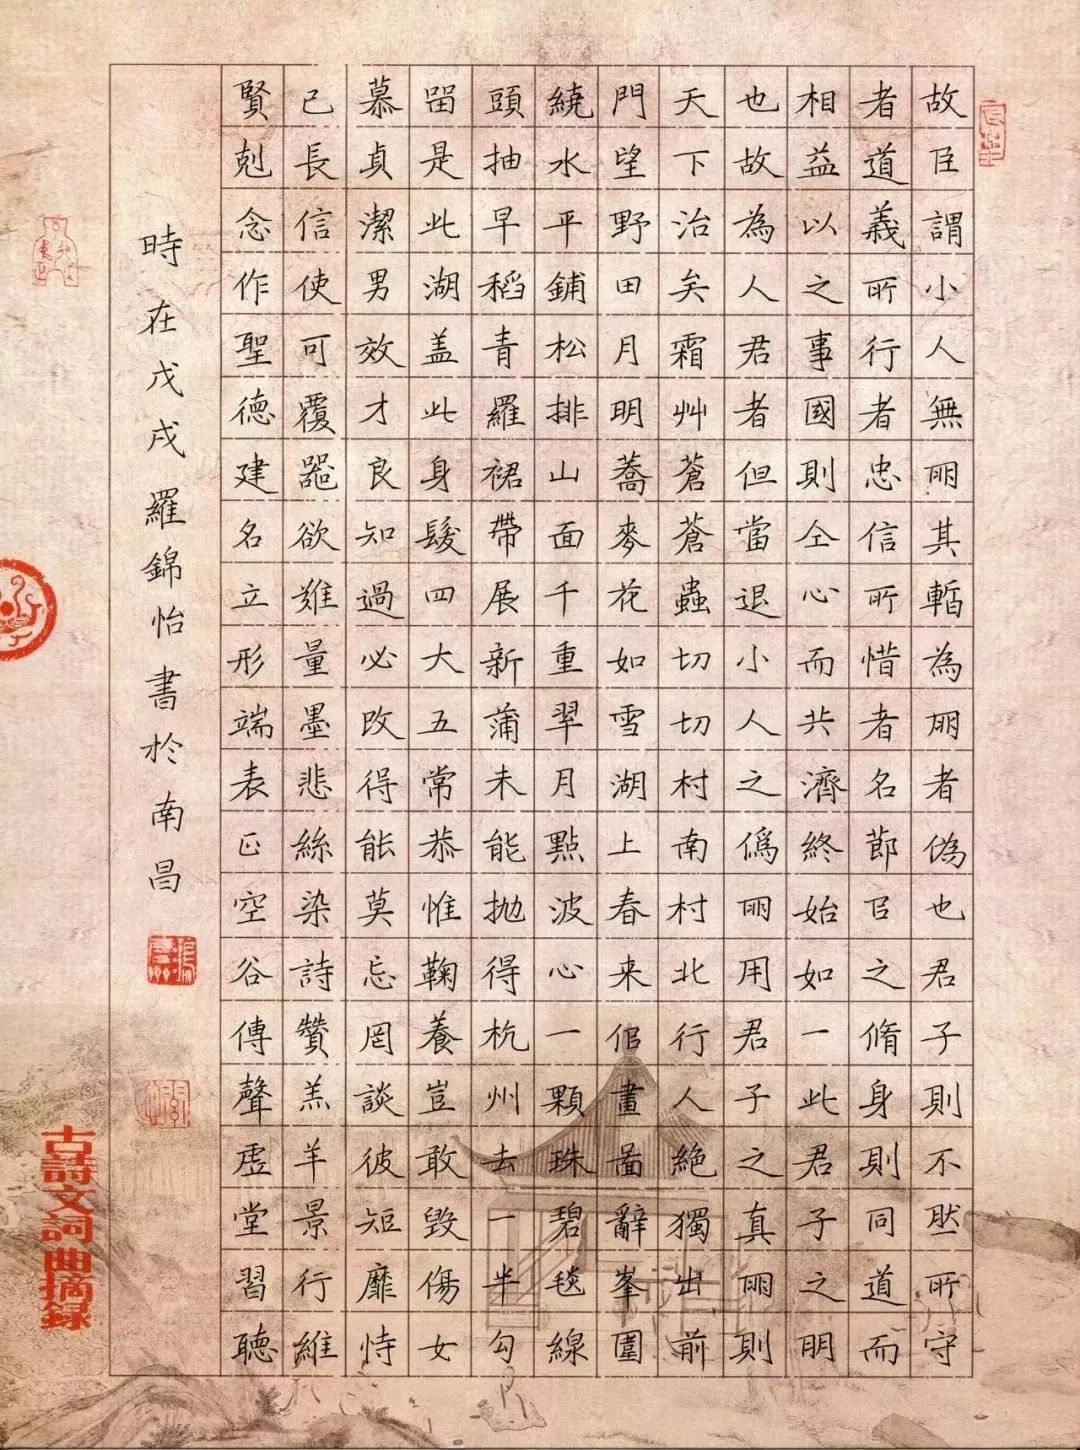 故臣謂小人無朋其暫為朋者偽也君子則不然所守
者道義所行者忠信所惜者名節㠯之脩身則同道而
相益以之事國則仝心而共濟終始如一此君子之朋
也故為人君者但當退小人之僞朋用君子之真朋則
天下治矣霜艸蒼蒼蟲切切村南村北行人絶獨出前
門望野田月明蕎麥花如雪湖上春来佀畫圖辭峯圍
繞水平鋪松排山面千重翠月點波心一顆珠碧毯線
頭抽早稻青羅裙帶展新蒲未能抛得杭州去一半勾
留是此湖盖此身髮四大五常恭惟鞠養豈敢毀傷女
慕貞潔男效才良知過必改得能莫忘罔談彼短靡恃
己長信使可覆器欲難量墨悲絲染詩贊羔羊景行維
賢剋念作聖德建名立形端表正空谷傳聲虛堂習聽
時在戊戌羅錦怡書於南昌
古詩文詞曲摘録